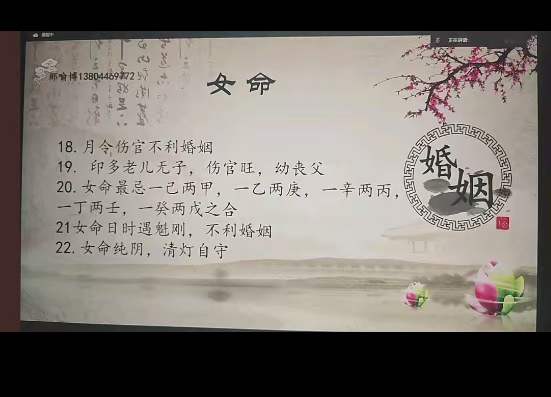 郎喻博13804469772
女命
18. 月令伤官不利婚姻
19. 印多老儿无子，伤官旺，幼丧父
20. 女命最忌一己两甲，一乙两庚，一辛两丙，
一丁两壬，一癸两戊之合
21女命日时遇魁刚，不利婚姻
22. 女命纯阴，清灯自守
婚姻